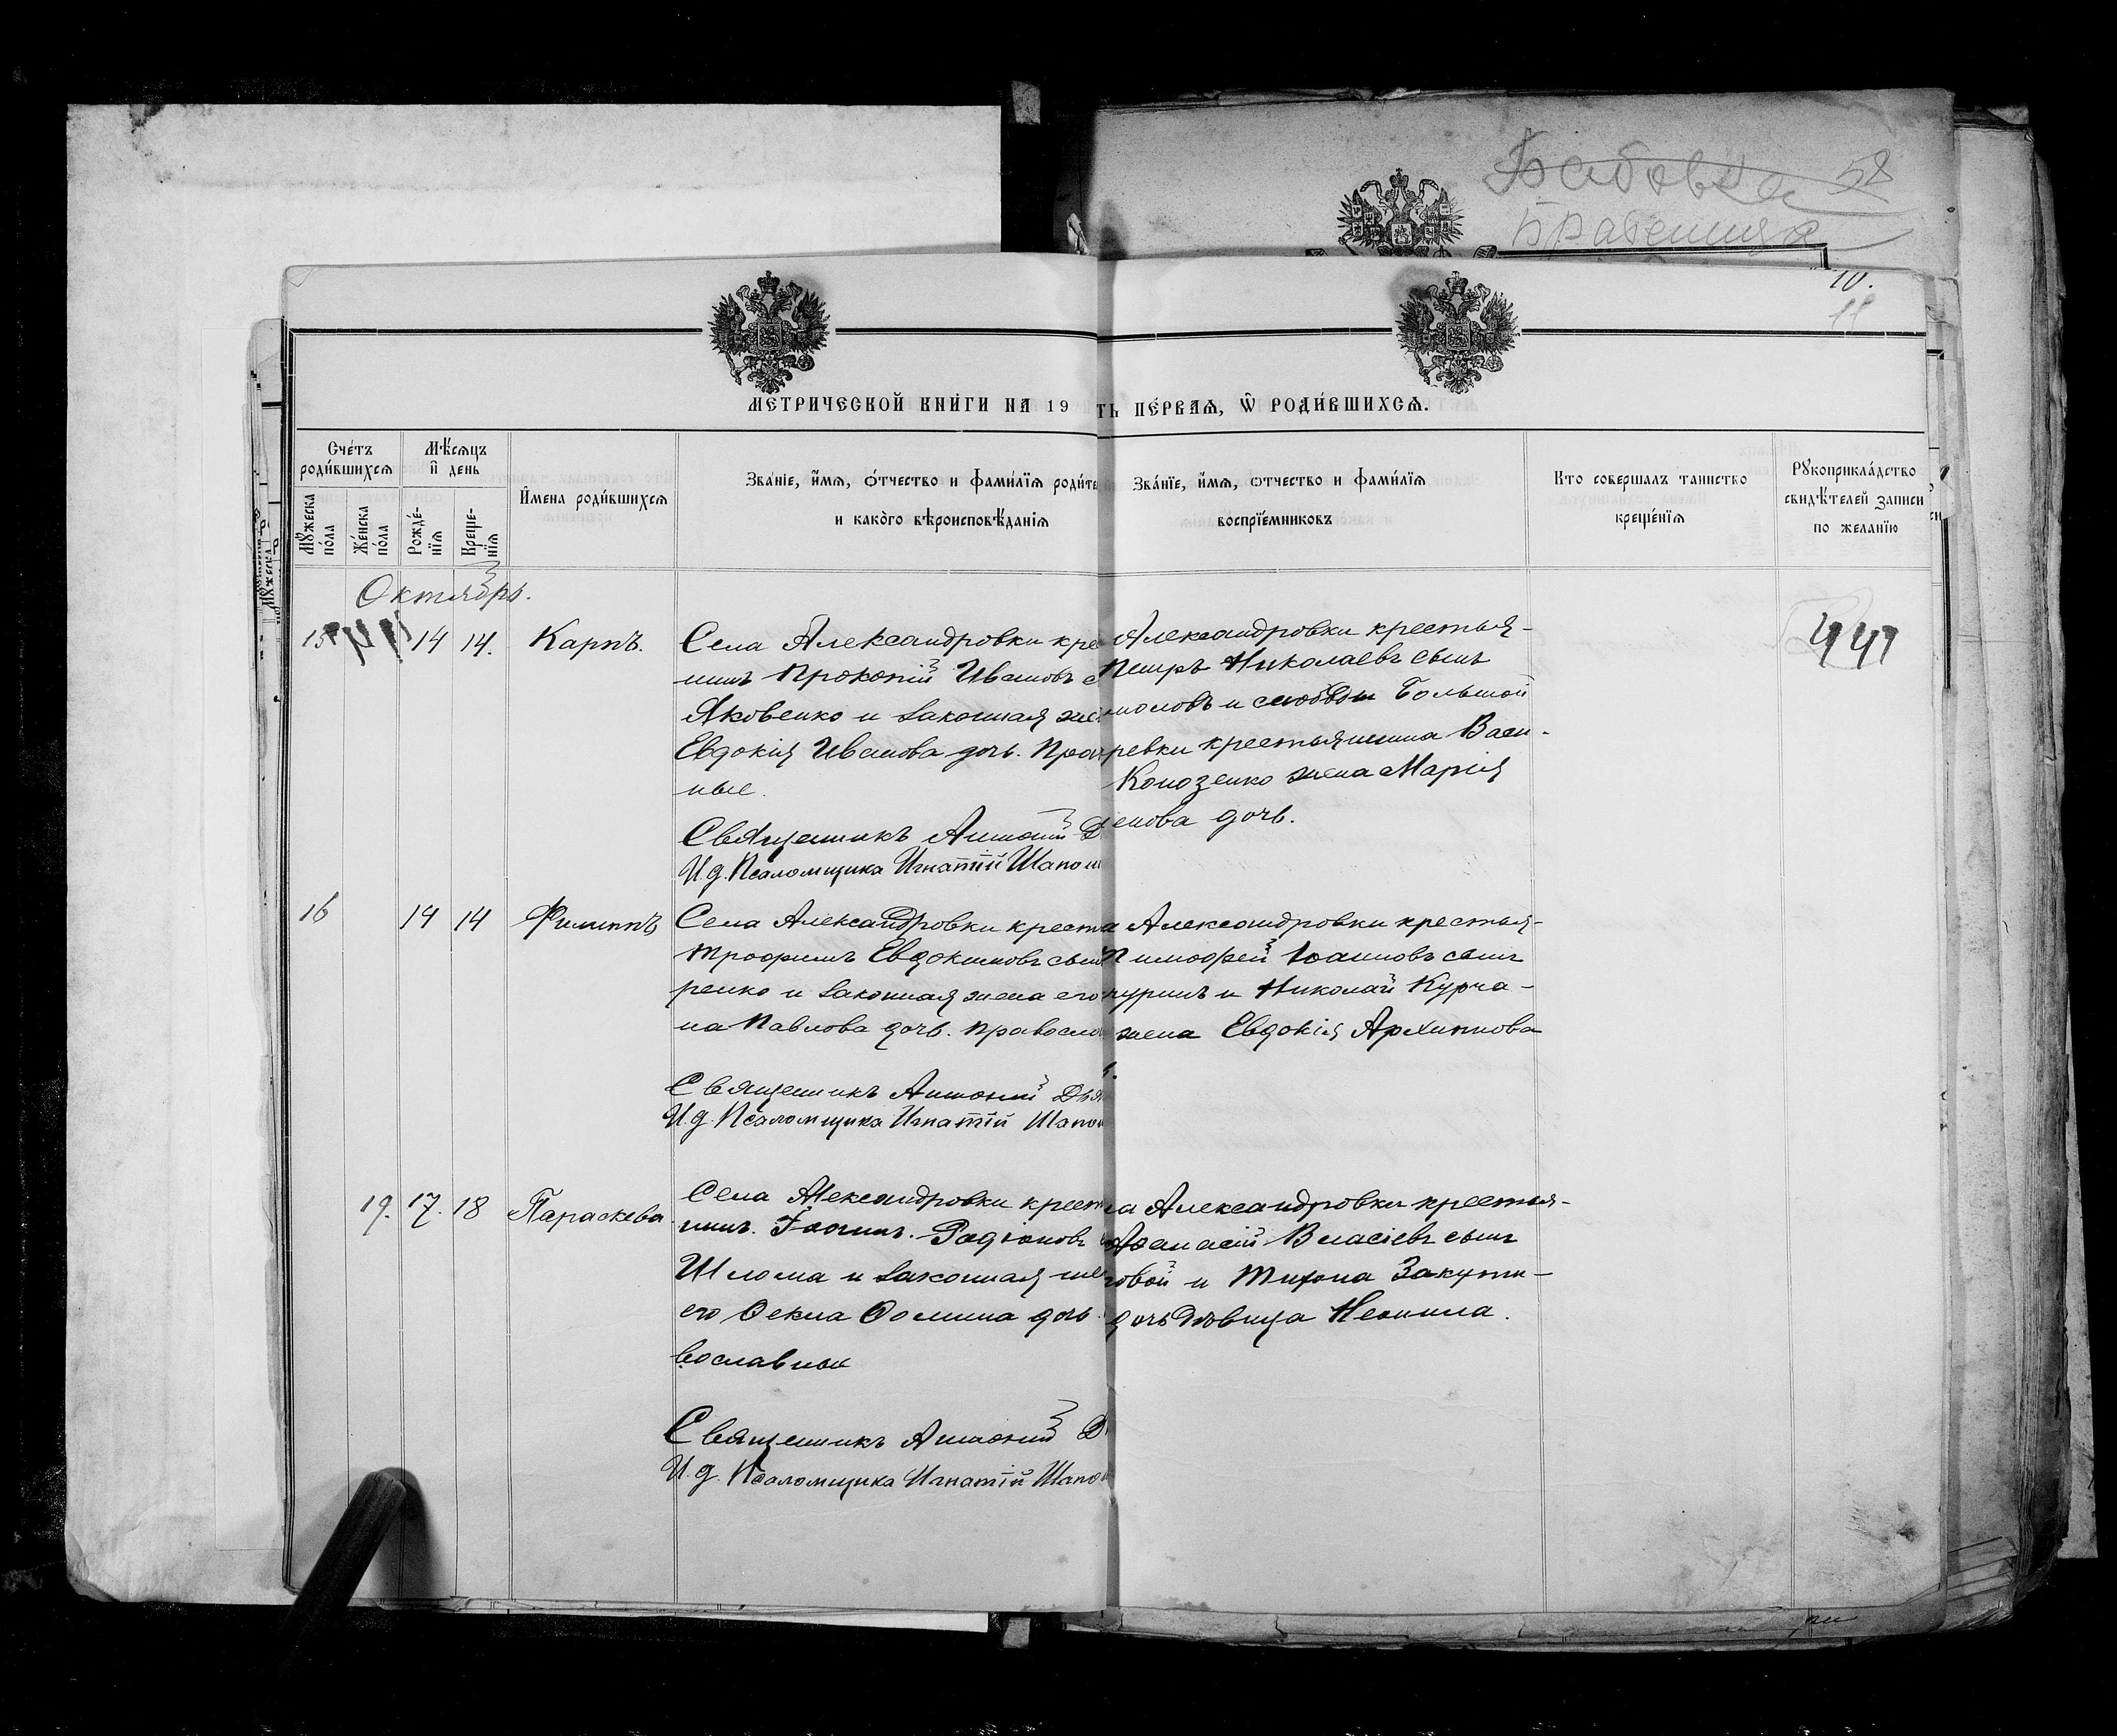 Бабовка 58
10.
11
МЕТРИЧЕСКОЙ КНИГИ НА 19
ТЬ ПЕРВАЯ, Ѿ РОДИВШИХСЯ.
Счетъ родившихся
Мѣсяцъ и день
Имена родившихся
Званіе, имя, отчество и фамилія родите
и какого вѣроисповѣданія
Званіе, имя, отчество и фамилія
воспріемниковъ
Кто совершалъ таинство
крещенія
Рукоприкладство
свидѣтелей записи
по желанію
Мужеска пола
Женска пола
Рожденія
Крещенія
Октябрь.
15 14 14. Карпъ.
Села Александровки кре
нинъ Прокопій Ивановъ с
Яковенко и законная же
Евдокія Иванова дочь. Прав
ные.
Священникъ Антоній Д
И. д. Псаломщика Игнатій Шапо
Александровки крестья-
Петръ Николаевъ сынъ
и слободы Большой
ревки крестьянина Васи-
Конозенко жена Марія
енова дочь.
441
16 14 14 Филиппъ
Села Александровки крест
Трофимъ Евдокимовъ сын
ренко и законная жена его
на Павлова дочь. Правосла
Священникъ Антоній Дья
И. д. Псаломщика Игнатій Шапов
а Александровки крестья-
Тимофей Іоанновъ сынъ
и Николай Курча-
жена Евдокія Архиппова
19. 17. 18 Параскева
Села Александровки крест
нинъ. Іоаннъ. Родіоновъ
Шлома и законная же
его Ѳекла Ѳомина дочь
вославные
Священникъ Антоній Д
И. д. Псаломщика Игнатій Шапов
ла Александровки крестья-
Аѳанасій Власіевъ сынъ
говой и Тихона Закути-
дочь дѣвица Неонила.